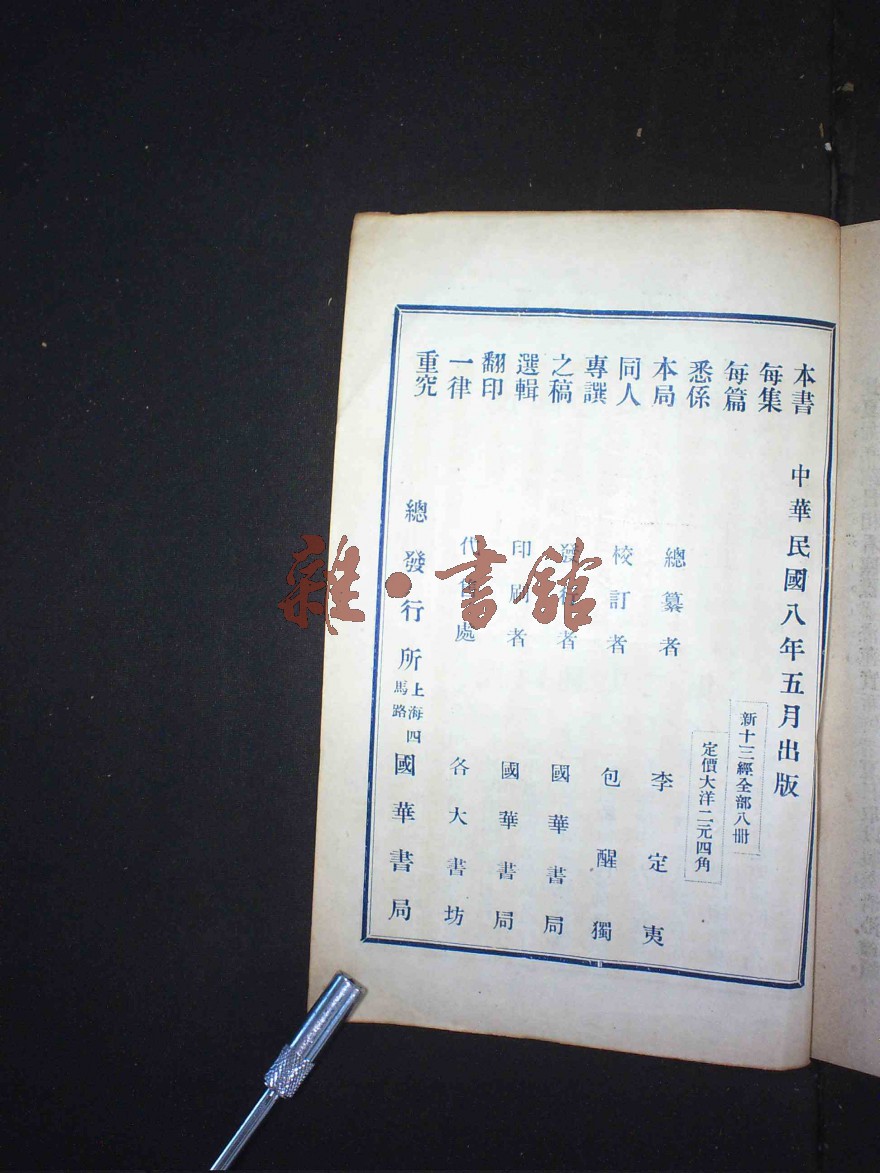 本書
每集
每篇
悉係
本局
同人
專譔
之稿
選輯
翻印
一律
重究
中華民國八年五月出版
新十三經全部八冊
定價大洋二元四角
總纂者 李定夷
校訂者 包醒獨
發行者 國華書局
印刷者 國華書局
代售處 各大書坊
總發行所 上海四馬路 國華書局
雜·書館